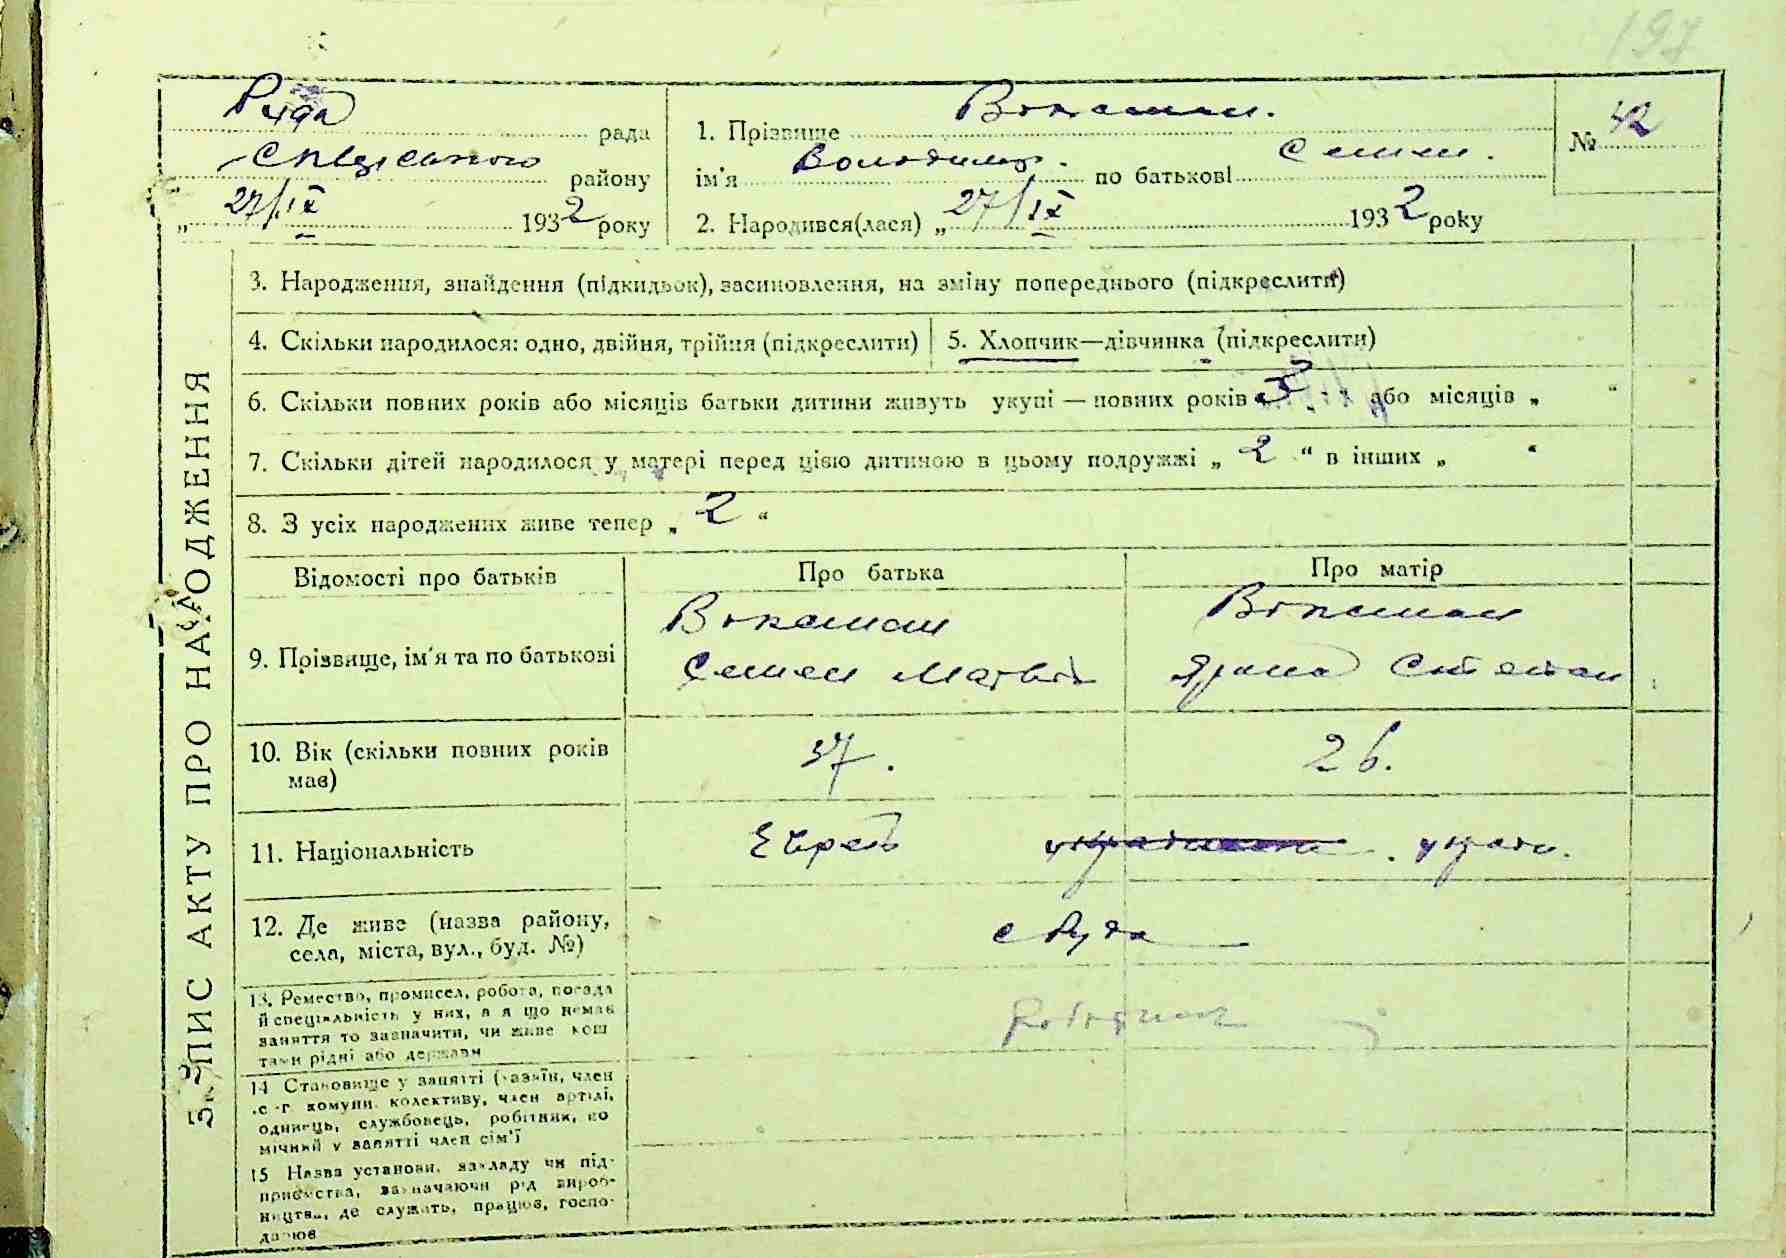 197
Руда рада
Сквирського району
„ 27/IX 1932 року
1. Прізвище Вокашан.
ім'я Володимир. по батькові Семен.
2. Народився(лася) „ 27/IX 1932 року
№ 42
3. Народження, знайдення (підкидьок), засиновлення, на зміну попереднього (підкреслити)
4. Скільки народилося: одно, двійня, трійня (підкреслити)
5. Хлопчик—дівчинка (підкреслити)
6. Скільки повних років або місяців батьки дитини живуть укупі — повних років „ 3 “ або місяців „ “
7. Скільки дітей народилося у матері перед цією дитиною в цьому подружжі „ 2 “ в інших „ “
8. З усіх народжених живе тепер „ 2 “
ЗАПИС АКТУ ПРО НАРОДЖЕННЯ
Відомості про батьків Про батька Про матір
9. Прізвище, ім'я та по батькові
Семен Матвій
Степан
10. Вік (скільки повних років
має)
37. 26.
11. Національність Єврей україн.
12. Де живе (назва району,
села, міста, вул., буд. №)
с Руда
13. Ремество, промисел, робота, посада
й спеціяльність у них, а якщо немає
заняття то зазначити, чи живе кош
тами рідні або держави
14 Становище у занятті (хазяїн, член
с.-г. комуни, колективу, член артілі,
одинець, службовець, робітник, по
мічний у занятті член сім'ї
15 Назва установи, закладу чи під-
приємства, зазначаючи рід вироб-
ництва, де служить, працює, госпо-
дарює